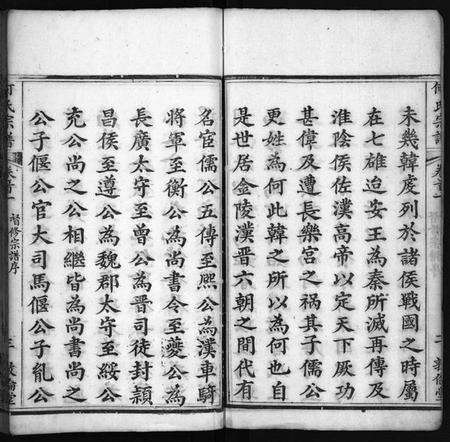 未幾韓虔列於諸侯戰國之時屬
在七雄迨安王為秦所滅再傳及
淮陰侯佐漢高帝以定天下厥功
甚偉及遭長樂宮之禍其子儒公
更姓為何此韓之所以為何也自
是世居金陵漢晉六朝之間代有
名官儒公五傳至熙公為漢車騎
將軍至衡公為尚書令至夔公為
長廣太守至曾公為晉司徒封潁
昌侯至遵公為魏郡太守至綏公
充公尚之公相繼皆為尚書尚之
公子偃公官大司馬偃公子胤公
何氏宗譜
卷首一
督修宗譜序
三
敦倫堂
何氏宗譜
卷首一
二
敦倫堂